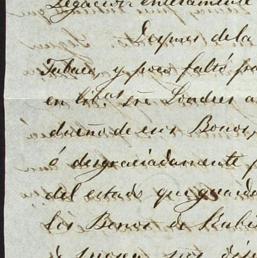 Legacion enteramente
Despues de la
Tabaco, y poco faltó pa
en lib.as sre Londres a
dueño de esos Bonos,
ó desgraciadamente p
del estado que guarda
los Bonos de